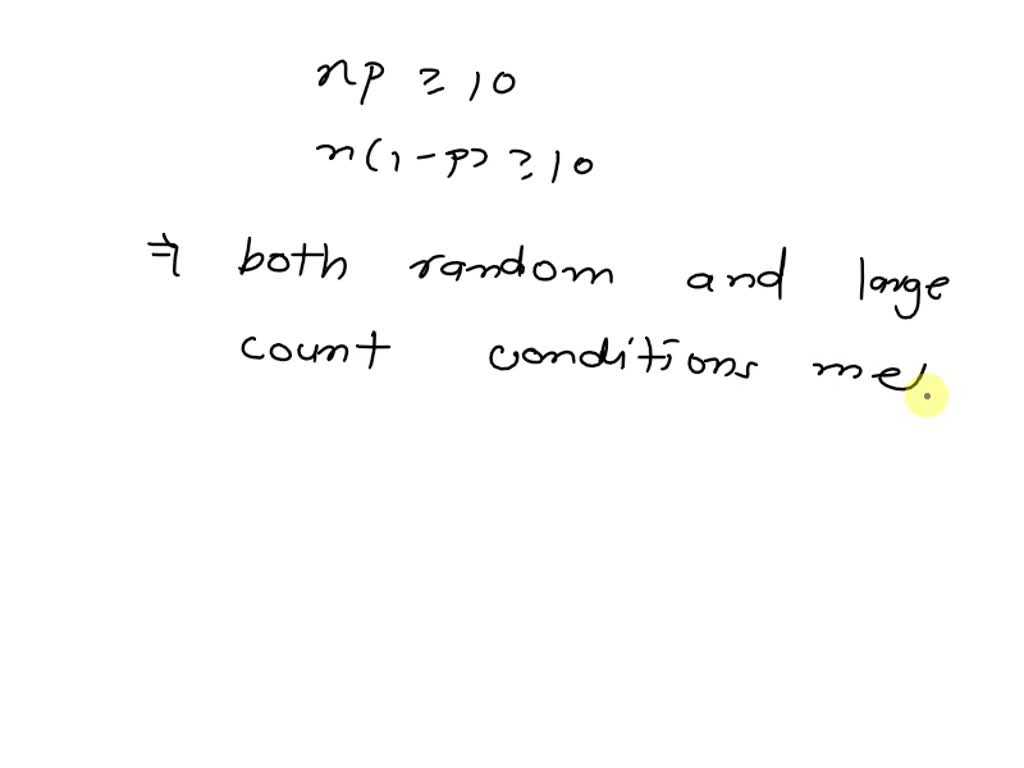 np ≥ 10
n(1-p) ≥ 10
⇒ both random and large
count conditions me